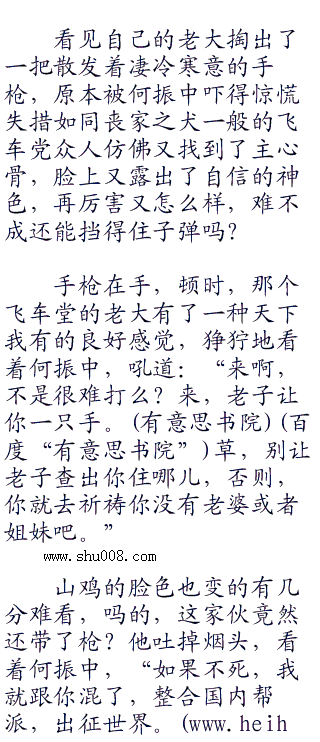 看见自己的老大掏出了
一把散发着凄冷寒意的手
枪，原本被何振中吓得惊慌
失措如同丧家之犬一般的飞
车党众人仿佛又找到了主心
骨，脸上又露出了自信的神
色，再厉害又怎么样，难不
成还能挡得住子弹吗？
手枪在手，顿时，那个
飞车堂的老大有了一种天下
我有的良好感觉，狰狞地看
着何振中，吼道：“来啊，
不是很难打么？来，老子让
你一只手。(有意思书院)(百
度“有意思书院”)草，别让
老子查出你住哪儿，否则，
你就去祈祷你没有老婆或者
姐妹吧。”
www.shu008.com
山鸡的脸色也变的有几
分难看，吗的，这家伙竟然
还带了枪？他吐掉烟头，看
着何振中，“如果不死，我
就跟你混了，整合国内帮
派，出征世界。(www.heih